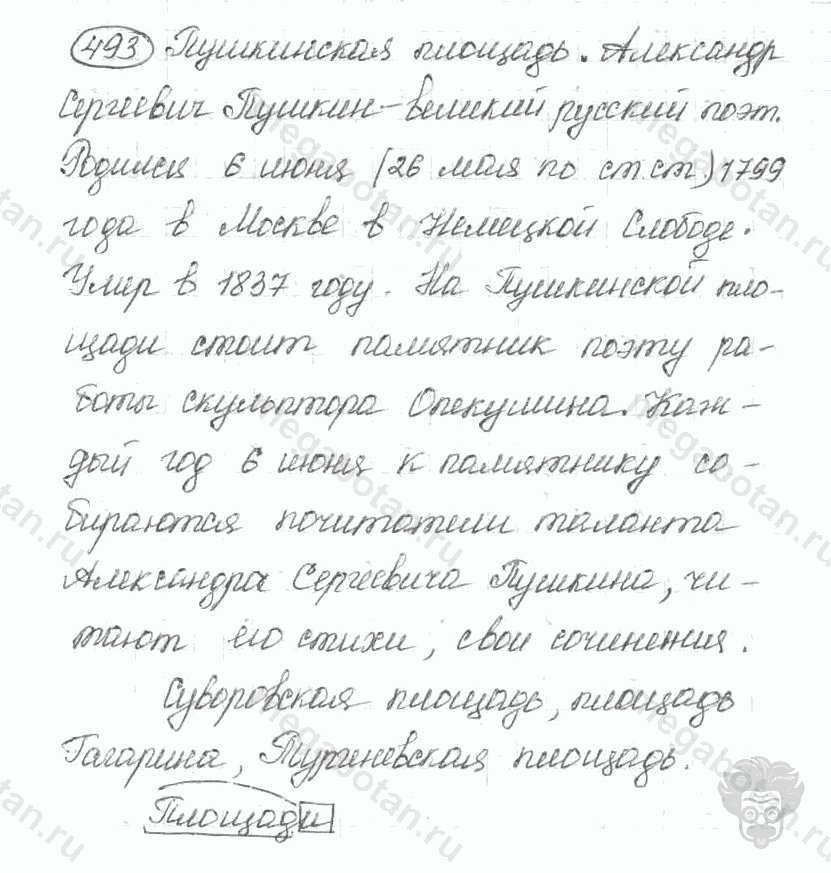 493 Пушкинская площадь. Александр
Сергеевич Пушкин – великий русский поэт.
Родился 6 июня (26 мая по ст.ст.) 1799
года в Москве в Немецкой Слободе.
Умер в 1837 году. На Пушкинской пло-
щади стоит памятник поэту ра-
боты скульптора Опекушина. Каж-
дый год 6 июня к памятнику со-
бираются почитатели таланта
Александра Сергеевича Пушкина, чи-
тают его стихи, свои сочинения.
Суворовская площадь, площадь
Гагарина, Тургеневская площадь.
Площади
megabotan.ru